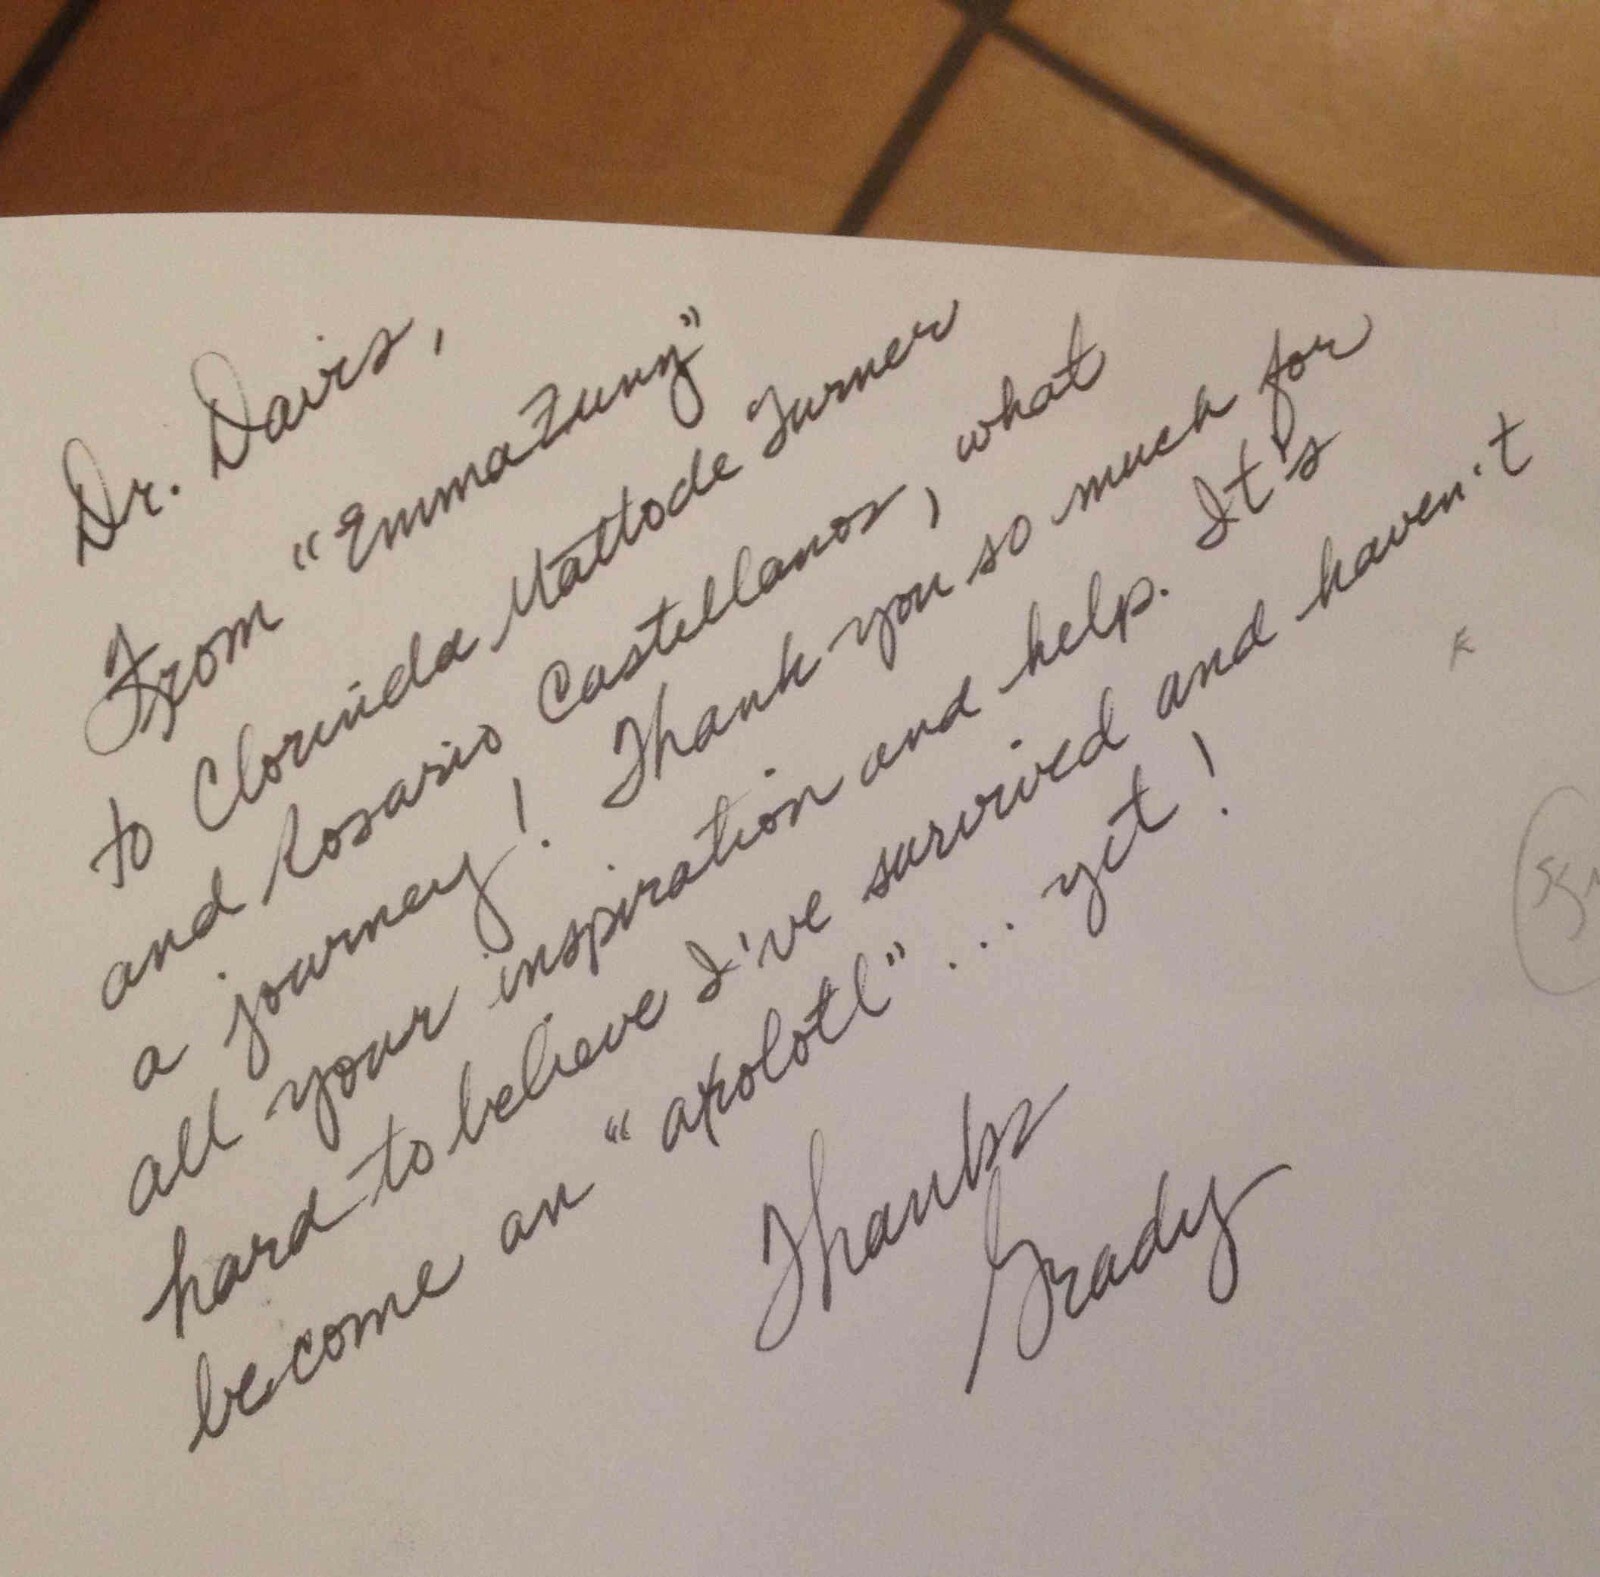 Dr. Davis,
From "Emma Zunz"
to Clorinda Matto de Turner
and Rosario Castellanos, what
a journey! Thank you so much for
all your inspiration and help. It's
hard to believe I've survived and haven't
become an "axolotl"... yet!
Thanks
Grady